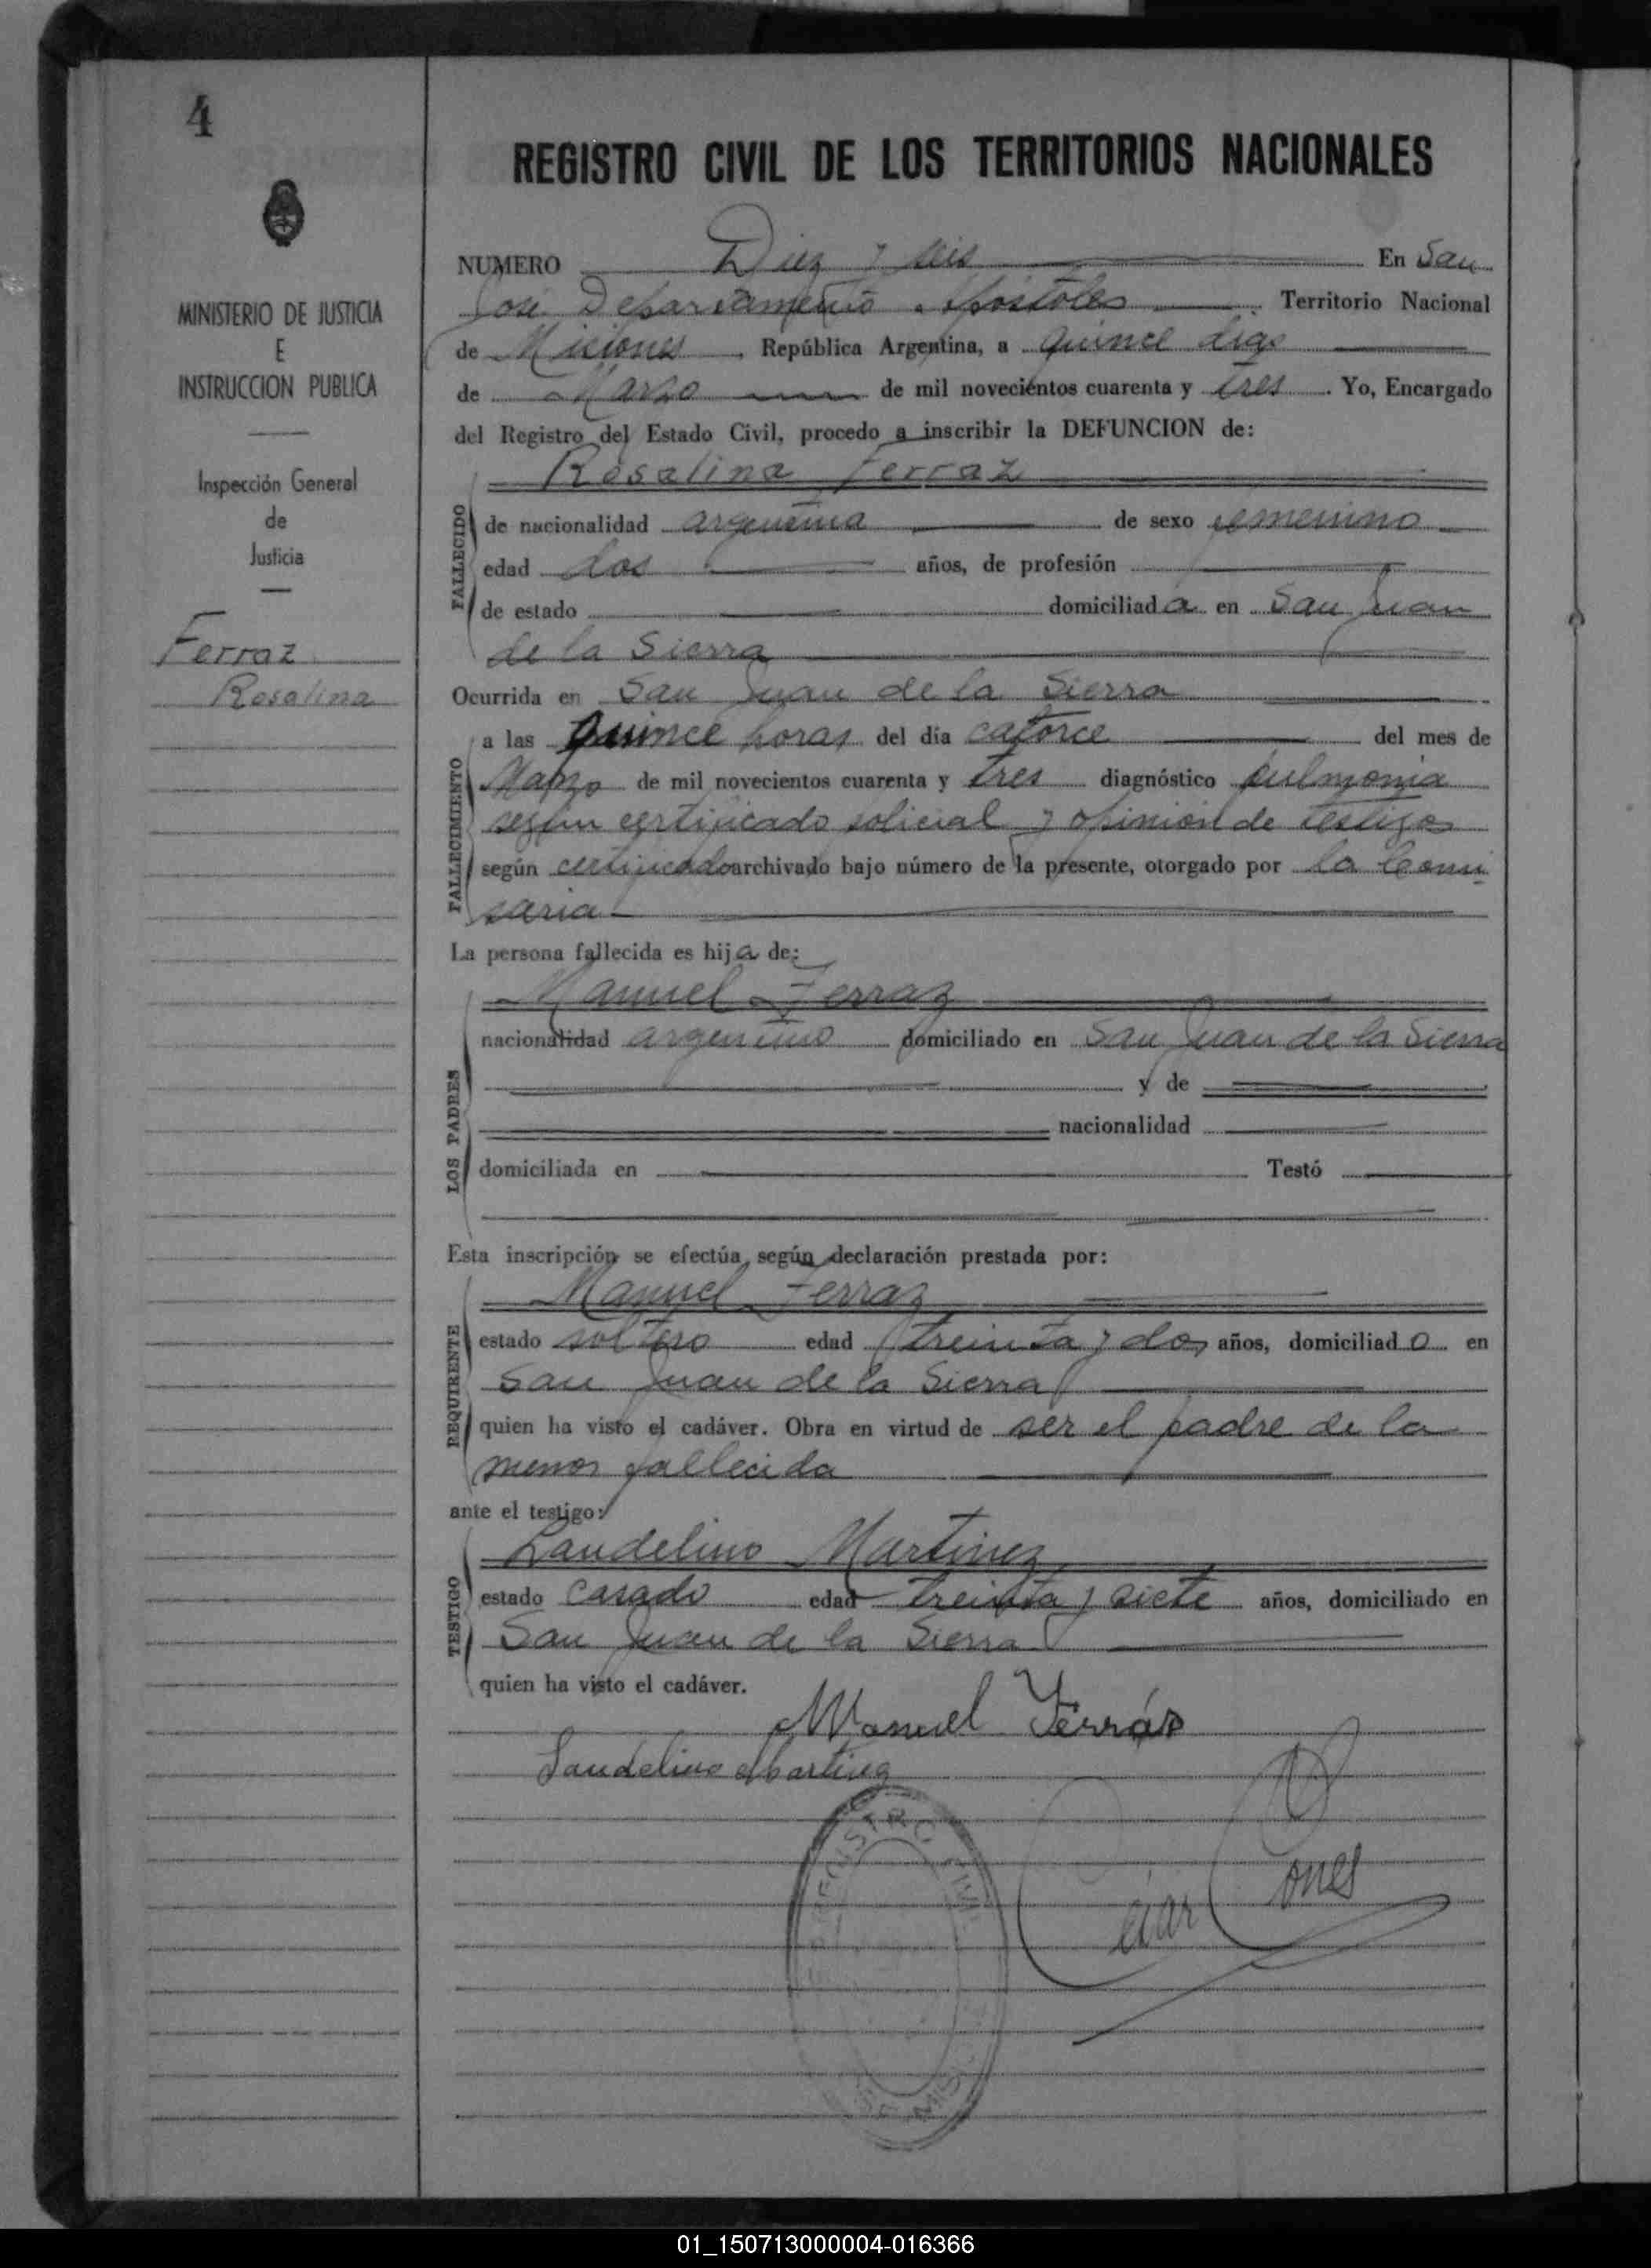 4
MINISTERIO DE JUSTICIA
E
INSTRUCCION PUBLICA
Inspección General
de
Justicia
Ferraz
Rosalina
REGISTRO CIVIL DE LOS TERRITORIOS NACIONALES
NUMERO Diez y seis En San
José Departamento Apóstoles Territorio Nacional
de Misiones, República Argentina, a quince días
de Marzo de mil novecientos cuarenta y tres. Yo, Encargado
del Registro del Estado Civil, procedo a inscribir la DEFUNCION de:
Rosalina Ferraz
FALLECIDO
de nacionalidad argentina de sexo femenino
edad dos años, de profesión
de estado domiciliada en San Juan
de la Sierra
Ocurrida en San Juan de la Sierra
FALLECIMIENTO
a las quince horas del día catorce del mes de
Marzo de mil novecientos cuarenta y tres diagnóstico pulmonía
según certificado policial y opinión de testigos
según certificado archivado bajo número de la presente, otorgado por la Comi
saria
La persona fallecida es hija de:
LOS PADRES
Manuel Ferraz
nacionalidad argentino domiciliado en San Juan de la Sierra
y de
nacionalidad
domiciliada en Testó
Esta inscripción se efectúa según declaración prestada por:
REQUIRENTE
Manuel Ferraz
estado soltero edad treinta y dos años, domiciliado en
San Juan de la Sierra
quien ha visto el cadáver. Obra en virtud de ser el padre de la
menor fallecida
ante el testigo:
TESTIGO
Landelino Martinez
estado casado edad treinta y siete años, domiciliado en
San Juan de la Sierra
quien ha visto el cadáver.
Manuel Ferrás
Landelino Martinez
REGISTRO CIVIL
César Cones
01_150713000004-016366